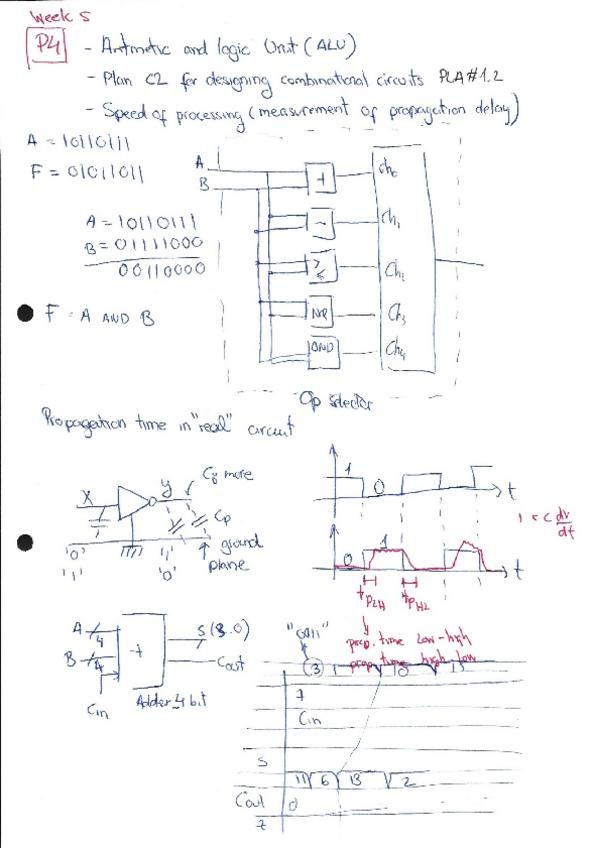 Week 5
P4
- Aritmetic and logic Unit (ALU)
- Plan C2 for designing combinational circuits PLA#1.2
- Speed of processing (measurement of propagation delay)
A = 10110111
F = 01011011
A = 10110111
B = 01111000
00110000
F = A AND B
A
B
+
-
AND
Ch0
Ch1
Ch2
Ch3
Ch4
Op selector
Propagation time in "real" circuit
X
y
more
Cp
ground
plane
'0'
'1'
'1'
'0'
1
0
t
0
1
t
i = c dv/dt
tPLH
prop. time low-high
prop. time high-low
A
4
B
4
+
Cin
S (3..0)
Cout
Adder 4 bit
3
7
Cin
S
11
6
13
2
Cout
0